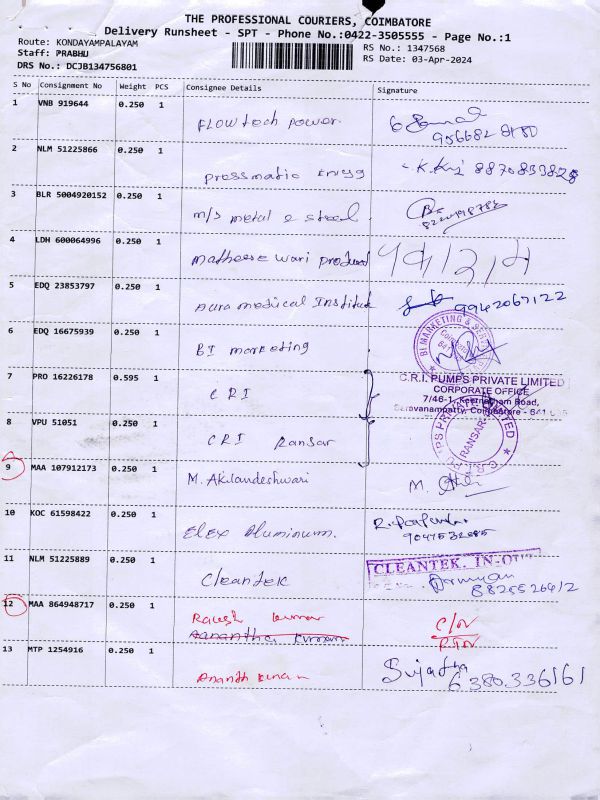 THE PROFESSIONAL COURIERS, COIMBATORE
Delivery Runsheet - SPT - Phone No.:0422-3505555 - Page No.:1
Route: KONDAYAMPALAYAM
RS No.: 1347568
Staff: PRABHU
RS Date: 03-Apr-2024
DRS No.: DCJB134756801
S No Consignment No Weight PCS Consignee Details Signature
1 VNB 919644 0.250 1 FLOWtech power.
2 NLM 51225866 0.250 1 pressmatic Enygg K.K
3 BLR 5004920152 0.250 1 m/s metal e steel
4 LDH 600064996 0.250 1 matheeswari product
5 EDQ 23853797 0.250 1 Aura medical Institut 9942067122
6 EDQ 16675939 0.250 1 BI marketing
BI MARKETING &
7 PRO 16226178 0.595 1 CRI
C.R.I. PUMPS PRIVATE LIMITED
CORPORATE OFFICE
7/46-1, Keeranatham Road,
Saravanampatty, Coimbatore - 641
8 VPU 51051 0.250 1 CRI Ransar
9 MAA 107912173 0.250 1 M. Akilandeshwari M.
10 KOC 61598422 0.250 1 Elex Aluminum.
11 NLM 51225889 0.250 1 Cleantek
CLEANTEK. IN-OUT
8825526412
12 MAA 864948717 0.250 1 Rajesh kumar
Aanantha kumar
13 MTP 1254916 0.250 1 Ananth kumar Sujatha
6380336161